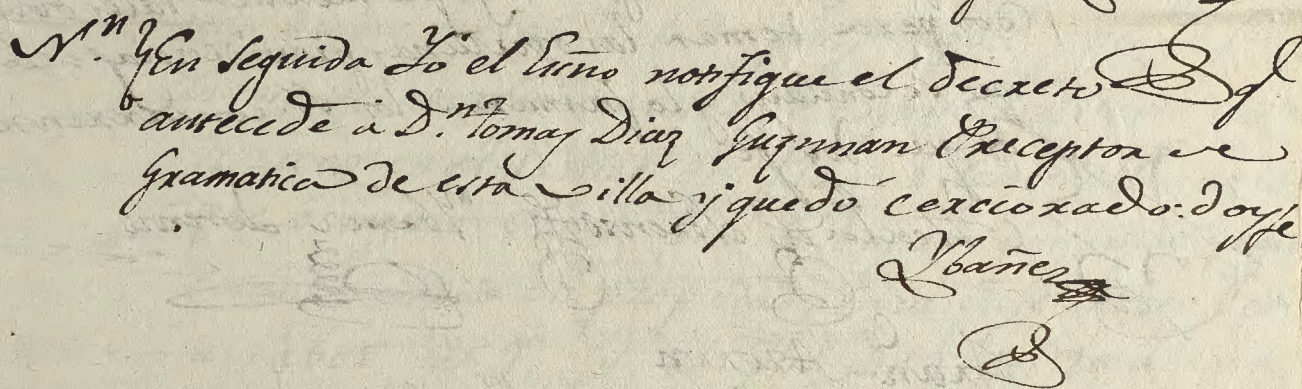 N.n En seguida Yo el Essno notifique el decreto q
antecede à D.n Tomas Diaz Guzman Preceptor de
Gramatica de esta villa y quedó cerciorado: doy fe
Ybañez